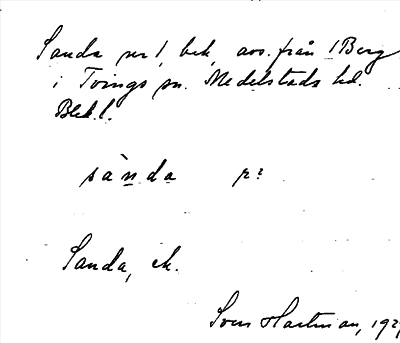 Sanda nr 1, bek. avs. från 1 Berg
i Tvings sn. Medelstads hd.
Blek.l.
sànda r:
Sanda, ek.
Sven Hartman, 192